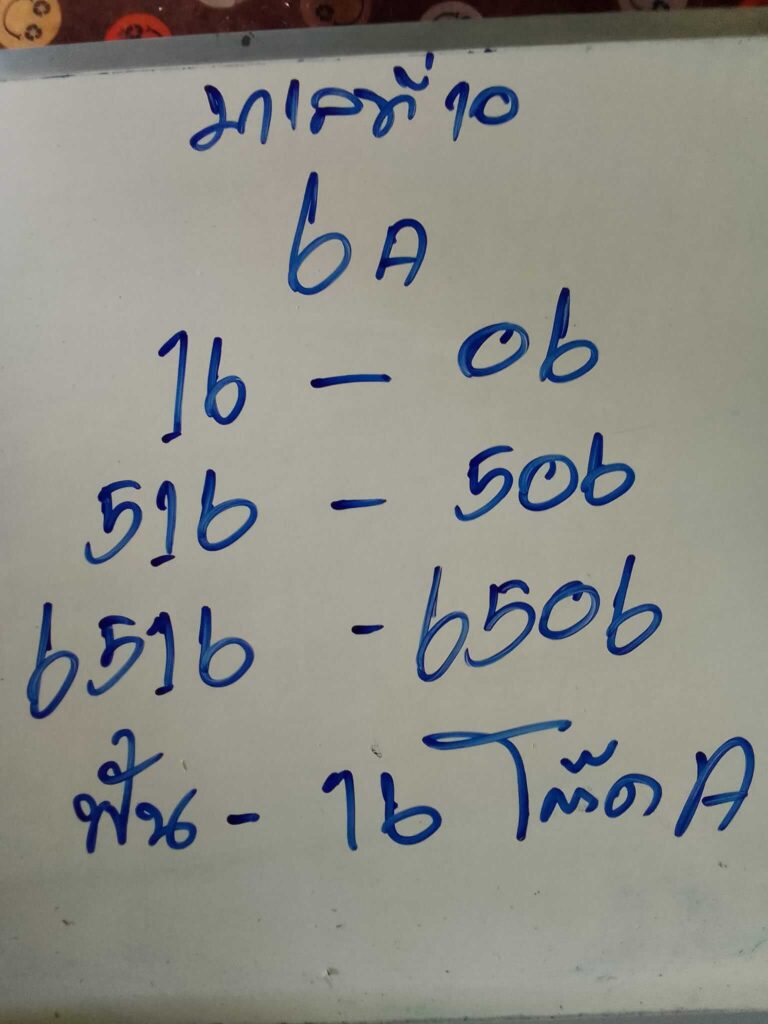 มาเลที่ 10
6 A
16 - 06
516 - 506
6516 - 6506
ฟัน - 16 โต๊ด A